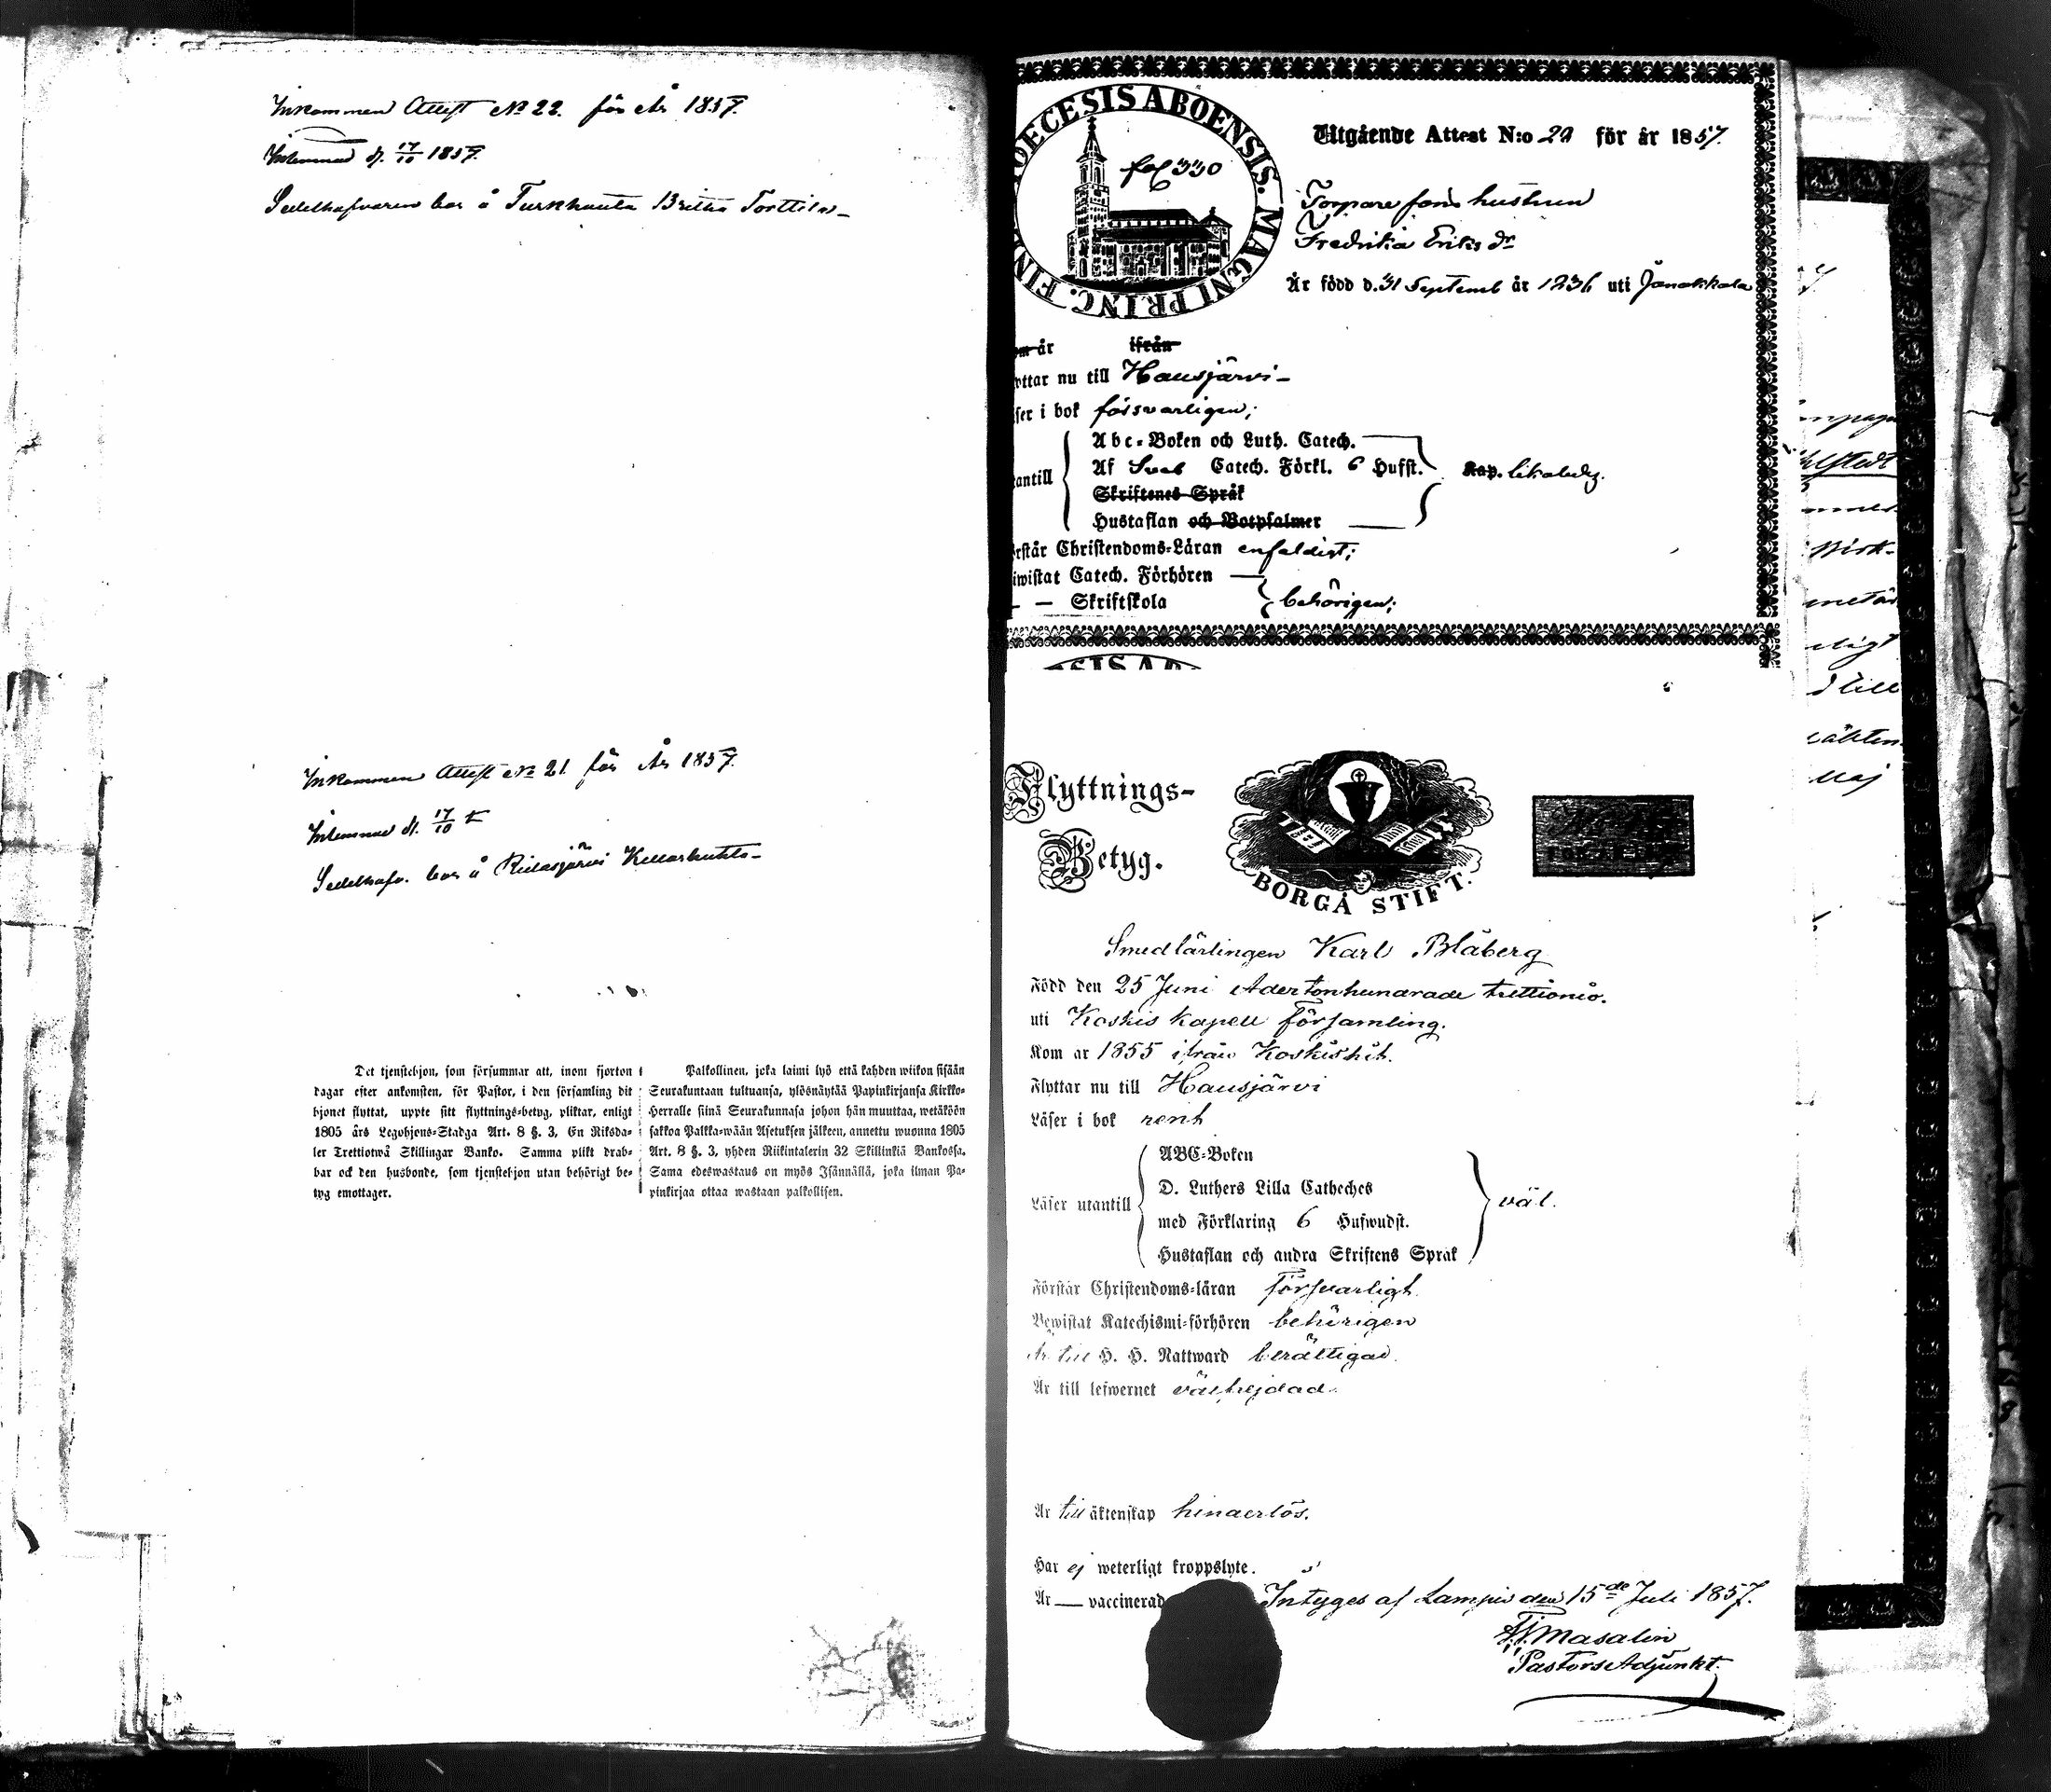 Inkommen Attest No 22. för År 1857.
Inlemnad d. 17/10 1857.
Sedelhafvaren bor å Turkhauta Britha Torttila
Inkommen Attest No 21 för År 1857.
Inlemnad d. 17/10
Sedelhafv. bor å Ridasjärvi
Det tjenstehjon, som försummar att, inom fjorton
dagar efter ankomsten, för Pastor, i den församling dit
hjonet flyttat, uppte sitt flyttnings-betyg, pliktar, enligt
1805 års Legohjons-Stadga Art. 8 §. 3, En Riksda-
ler Trettiotwå Skillingar Banko. Samma plikt drab-
bar ock den husbonde, som tjenstehjon utan behörigt be-
tyg emottager.
Palkollinen, joka laimi lyö että kahden wiikon sisään
Seurakuntaan tultuansa, ylösnäytää Papinkirjansa Kirkko-
Herralle siinä Seurakunnasa johon hän muuttaa, wetäköön
sakkoa Palkka-wään Asetuksen jälkeen, annettu wuonna 1805
Art. 8 §. 3, yhden Riikintalerin 32 Skillinkiä Bankossa.
Sama edeswastaus on myös Isännällä, joka ilman Pa-
pinkirjaa ottaa wastaan palkollisen.
OECESIS ABOENSIS. MAGNI PRINC. FIN
fol 330
Utgående Attest N:o 22 för år 1857.
Torpare sons hustrun
Fredrika Eriks dr
Är född d. 31 Septemb år 1836 uti Janakkala
år ifrån
ottar nu till Hausjärvi
äser i bok försvarligen;
antill
Abc-Boken och Luth. Catech.
Af Sveb Catech. Förkl. 6 Hufst. Kap.
Skriftenes Språk
Hustaflan och Botpsalmer
rstår Christendoms-Läran enfaldigt;
iwistat Catech. Förhören
— — Skriftskola behörigen;
Flyttnings-
Betyg.
BORGÅ STIFT.
Smedlärlingen Karl Blåberg
Född den 25 Juni Adertonhundrade trettionio.
uti Koskis kapell församling.
Kom år 1855 ifrån Koskis hit.
Flyttar nu till Hausjärvi
Läser i bok rent
Läser utantill
ABC-Boken
D. Luthers Lilla Catheches
med Förklaring 6 Hufwudst.
Hustaflan och andra Skriftens Språk
väl.
Förstår Christendoms-läran försvarligt
Bewistat Katechismi-förhören behörigen
Är till H. H. Nattward berättigad.
Är till lefwernet välfrejdad.
Är till äktenskap hinderlös.
Har ej weterligt kroppslyte.
Är — vaccinerad Intygas af Lampis den 15de Juli 1857.
Masalin
Pastors Adjunkt.